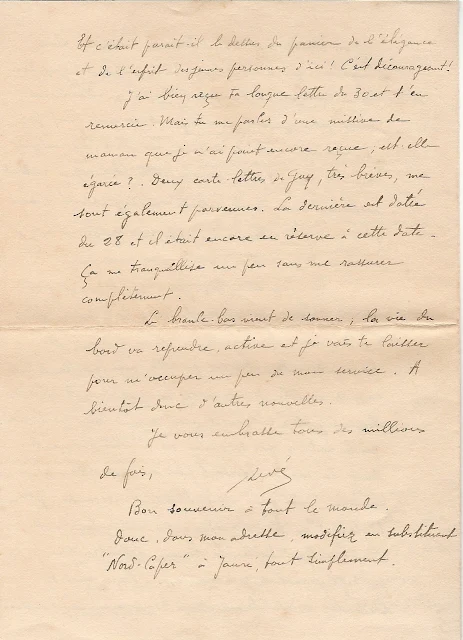 Et c'était paraît-il le dessus du panier de l'élégance
et de l'esprit des jeunes personnes d'ici! C'est décourageant!
J'ai bien reçu ta longue lettre du 30 et t'en
remercie. Mais tu me parles d'une missive de
maman que je n'ai point encore reçue; est-elle
égarée?. Deux carte-lettres de Guy, très brèves, me
sont également parvenues. La dernière est datée
du 28 et il était encore en réserve à cette date.
Ça me tranquillise un peu sans me rassurer
complètement.
Le branle-bas vient de sonner; la vie du
bord va reprendre, active et je vais te laisser
pour m'occuper un peu de mon service. A
bientôt donc d'autres nouvelles.
Je vous embrasse tous des millions
de fois,
Bon souvenir à tout le monde.
Donc, dans mon adresse, modifiez en substituant
"Nord-Caper" à Jauré, tout simplement.